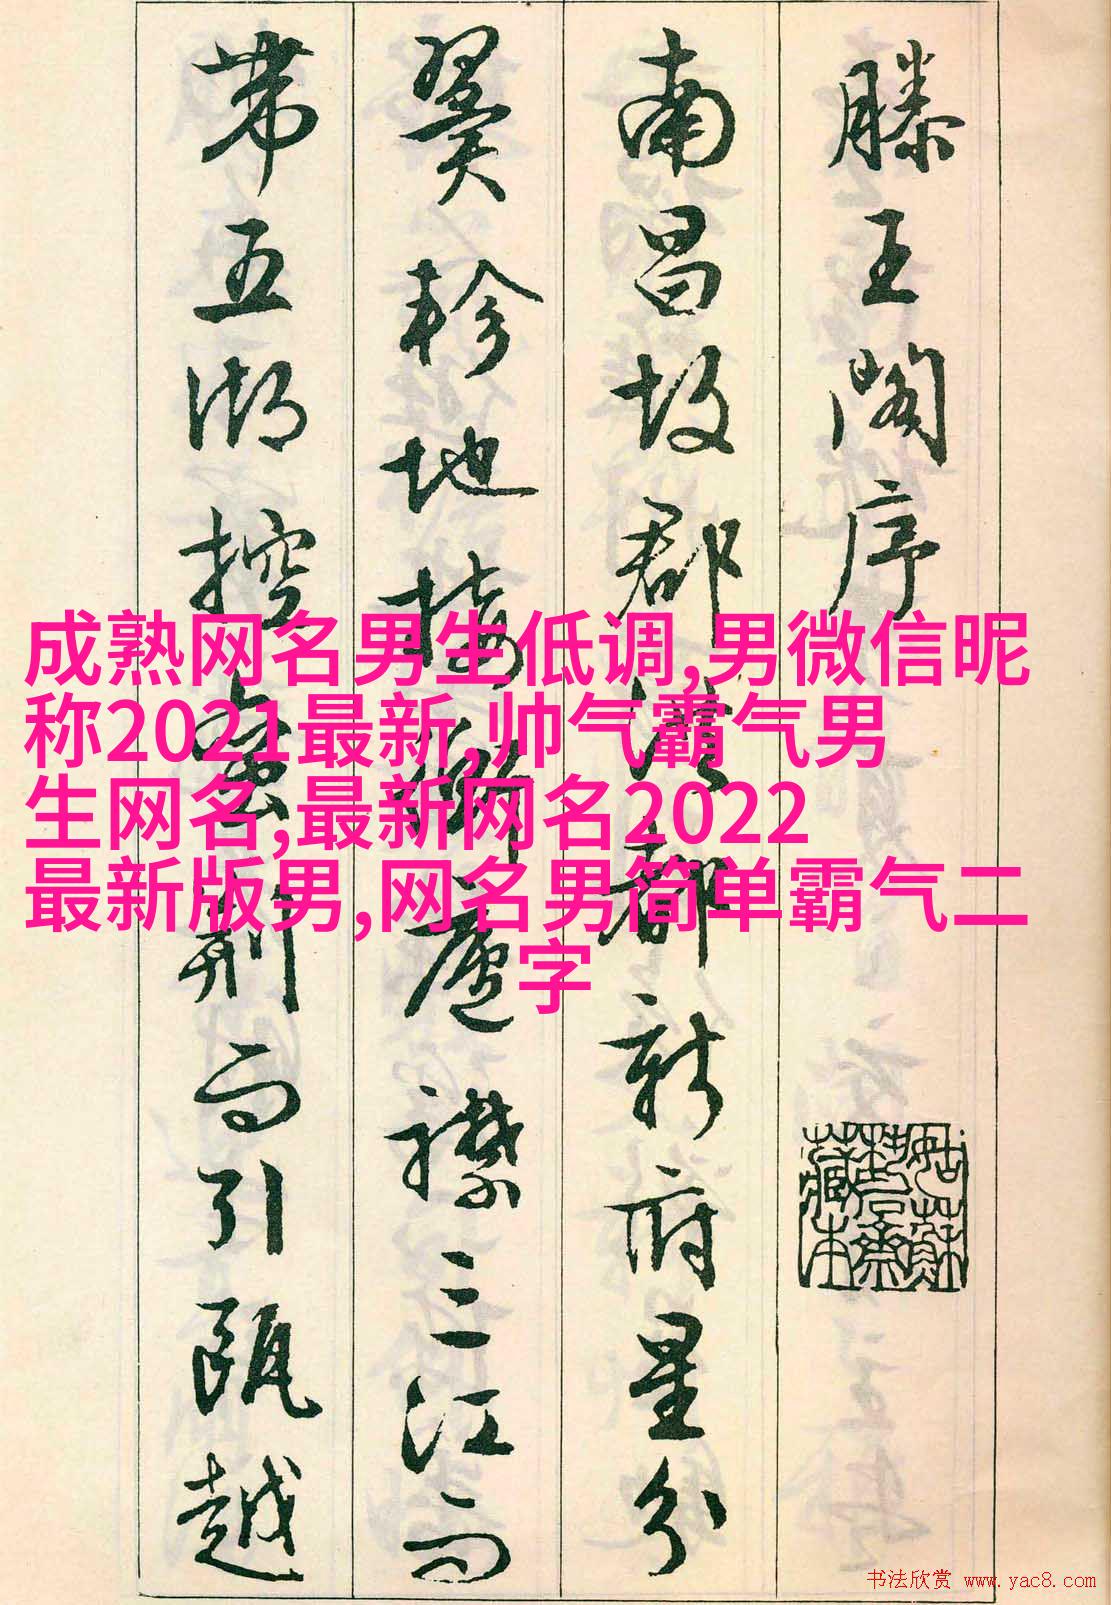 滕王阁序
南昌故郡洪都新府星分
翼轸地接衡庐襟三江而
带五湖控蛮荆而引瓯越
成熟网名男生低调,男微信昵
称2021最新,帅气霸气男
生网名,最新网名2022
最新版男,网名男简单霸气二
字
书法欣赏 www.yac8.com